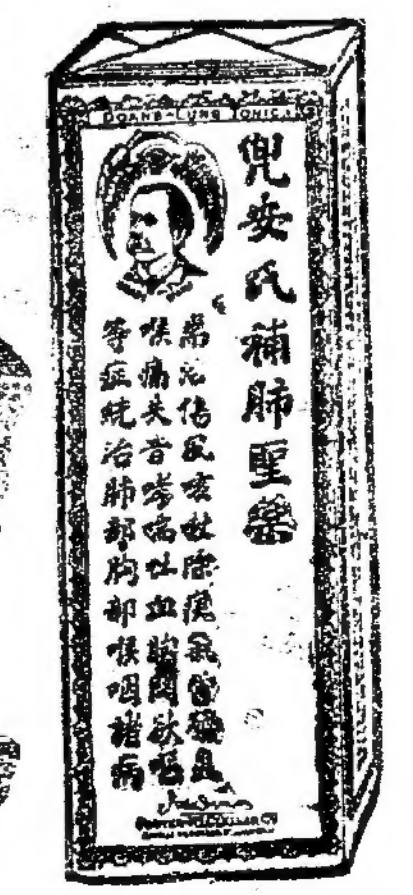 DOANS-LUNG TONIC
兜安氏補肺聖藥
治傷風咳吐除痰氣管
喉痛失音哮喘吐血胸悶欲嘔
等症統治肺部胸部喉咽諸病